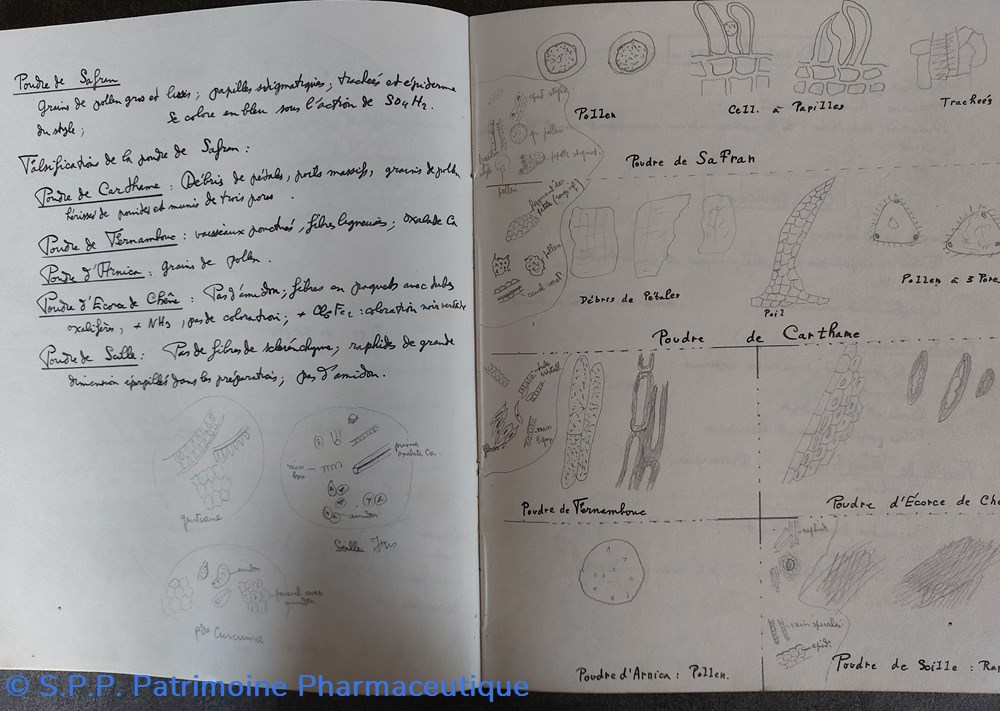 Poudre de Safran
Grains de pollen gros et lisses ; papilles stigmatiques, trachées et épiderme
du style ; Se colore en bleu sous l'action de SO4H2.
Falsifications de la poudre de Safran :
Poudre de Carthame : Débris de pétales, poils massifs, grains de pollen
hérissés de pointes et munis de trois pores.
Poudre de Fernambouc : vaisseaux ponctués, fibres ligneuses ; oxalate Ca
Poudre d'Arnica : grains de pollen.
Poudre d'Écorce de Chêne : Pas d'amidon ; fibres en paquets avec tubes
oxalifères, + NH3, pas de coloration ; + : coloration noir verdâtre
Poudre de Scille : Pas de fibres de sclérenchyme ; raphides de grande
dimension éparpillés dans les préparations ; pas d'amidon.
gentiane
prisme
oxalate Ca.
amidon
Scille Iris
amidon
parench avec
pdre Curcuma
Pollen
Cell. à Papilles
Trachées
épid style
pollen
papille stigmat.
Poudre de Safran
pollen
pollen
Débris de Pétales
Poil
Pollen à 3 Pore
Poudre de Carthame
Poudre de Fernambouc
Poudre d'Écorce de Ch
raphide
épid.
Poudre d'Arnica : Pollen.
Poudre de Scille : Rap
© S.P.P. Patrimoine Pharmaceutique